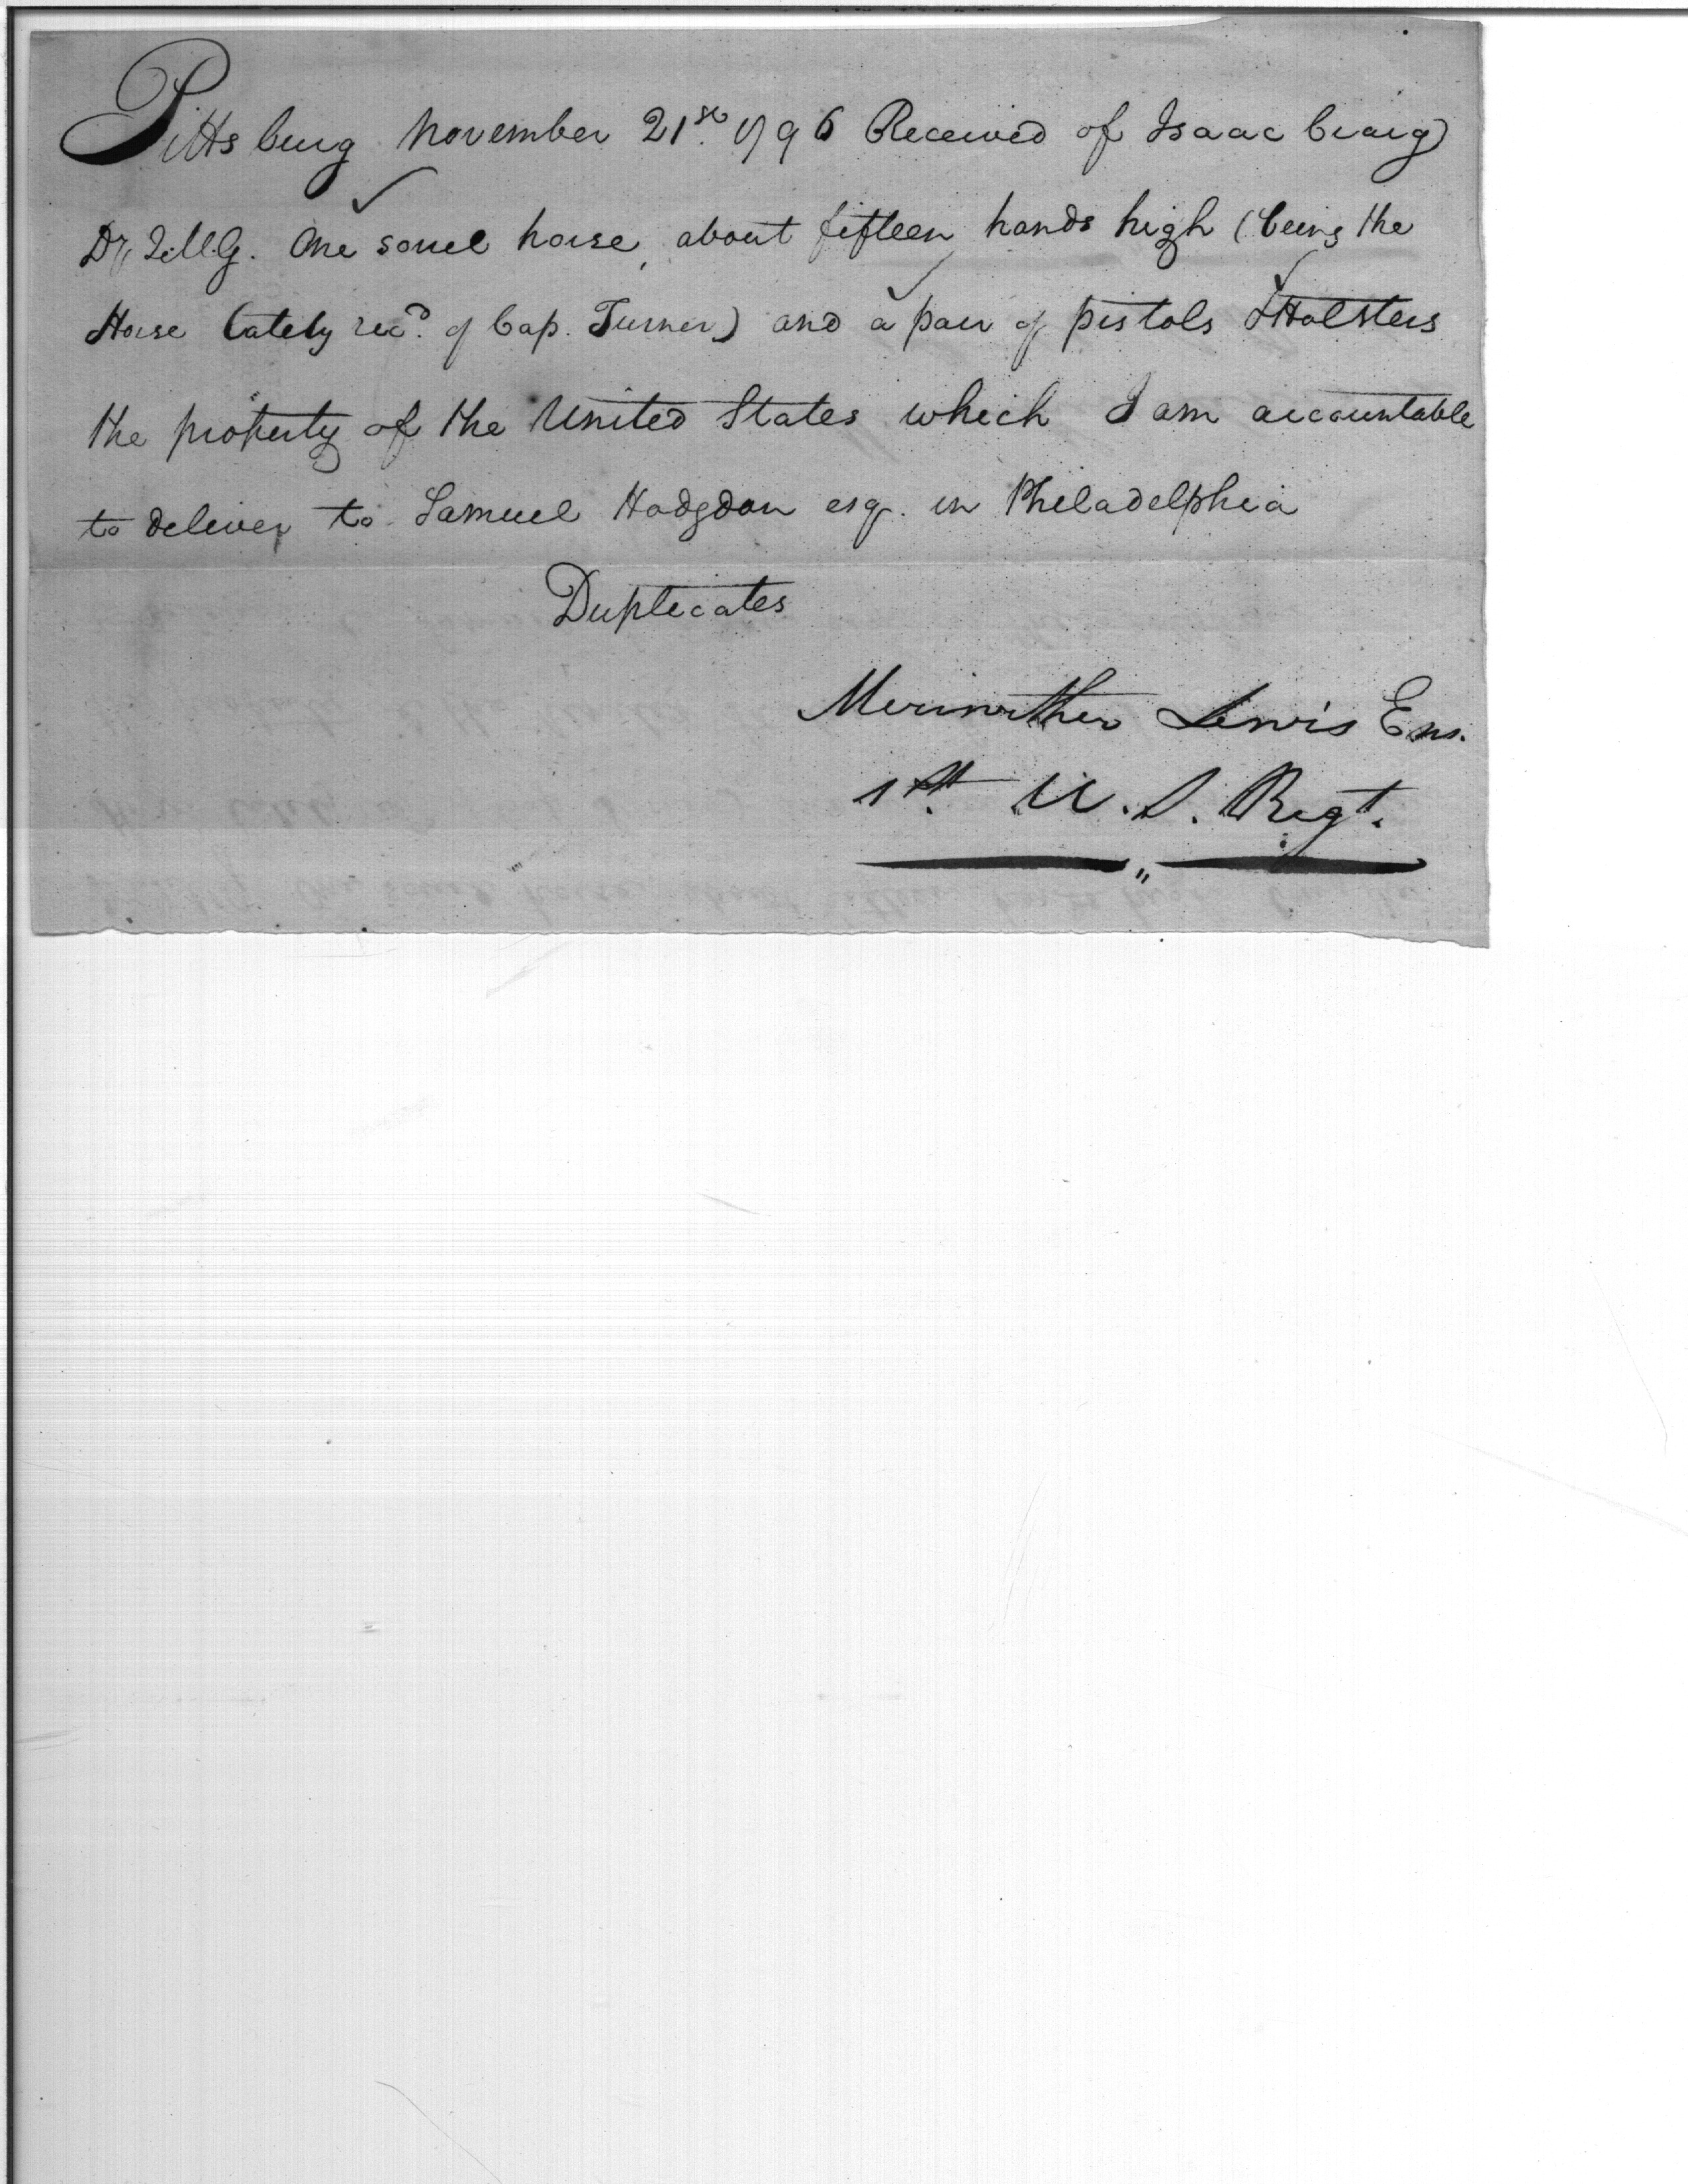 Pittsburg November 21st. 1796 Received of Isaac Craig
D, Q.M.G. One sorrel horse, about fifteen hands high (being the
Horse lately recd. of Cap. Turner) and a pair of pistols & Holsters
the property of the United States which I am accountable
to deliver to Samuel Hodgdon esq. in Philadelphia
Duplicates
Meriwether Lewis Ens.
1st. U. S. Regt.